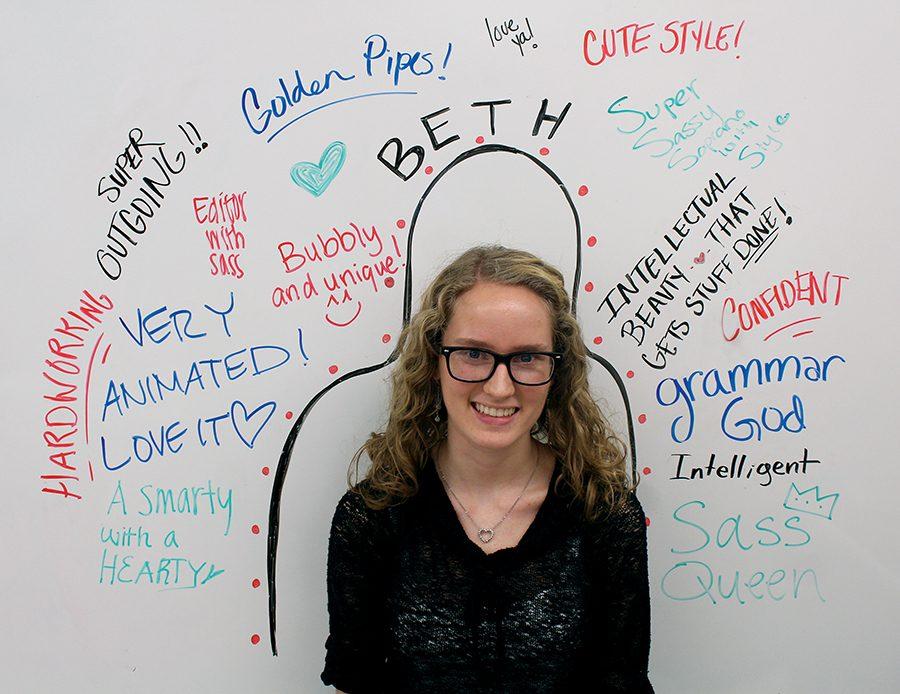 love
ya!
CUTE STYLE!
Golden Pipes!
BETH
Super
Sassy
Soprano
with
Style
SUPER
OUTGOING!!
Editor
with
sass
Bubbly
and unique!
INTELLECTUAL
BEAUTY THAT
GETS STUFF DONE!
CONFIDENT
HARDWORKING
VERY
ANIMATED!
LOVE IT
grammar
God
Intelligent
A Smarty
with a
HEARTY
Sass
Queen